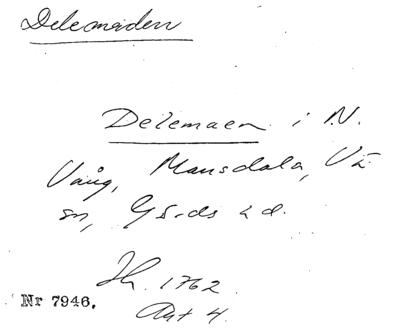 Delemaden
Delemaen i N.
Vång, Mansdala, Vä
sn, Gärds hd.
Jh. 1762
Akt 4.
Nr 7946.